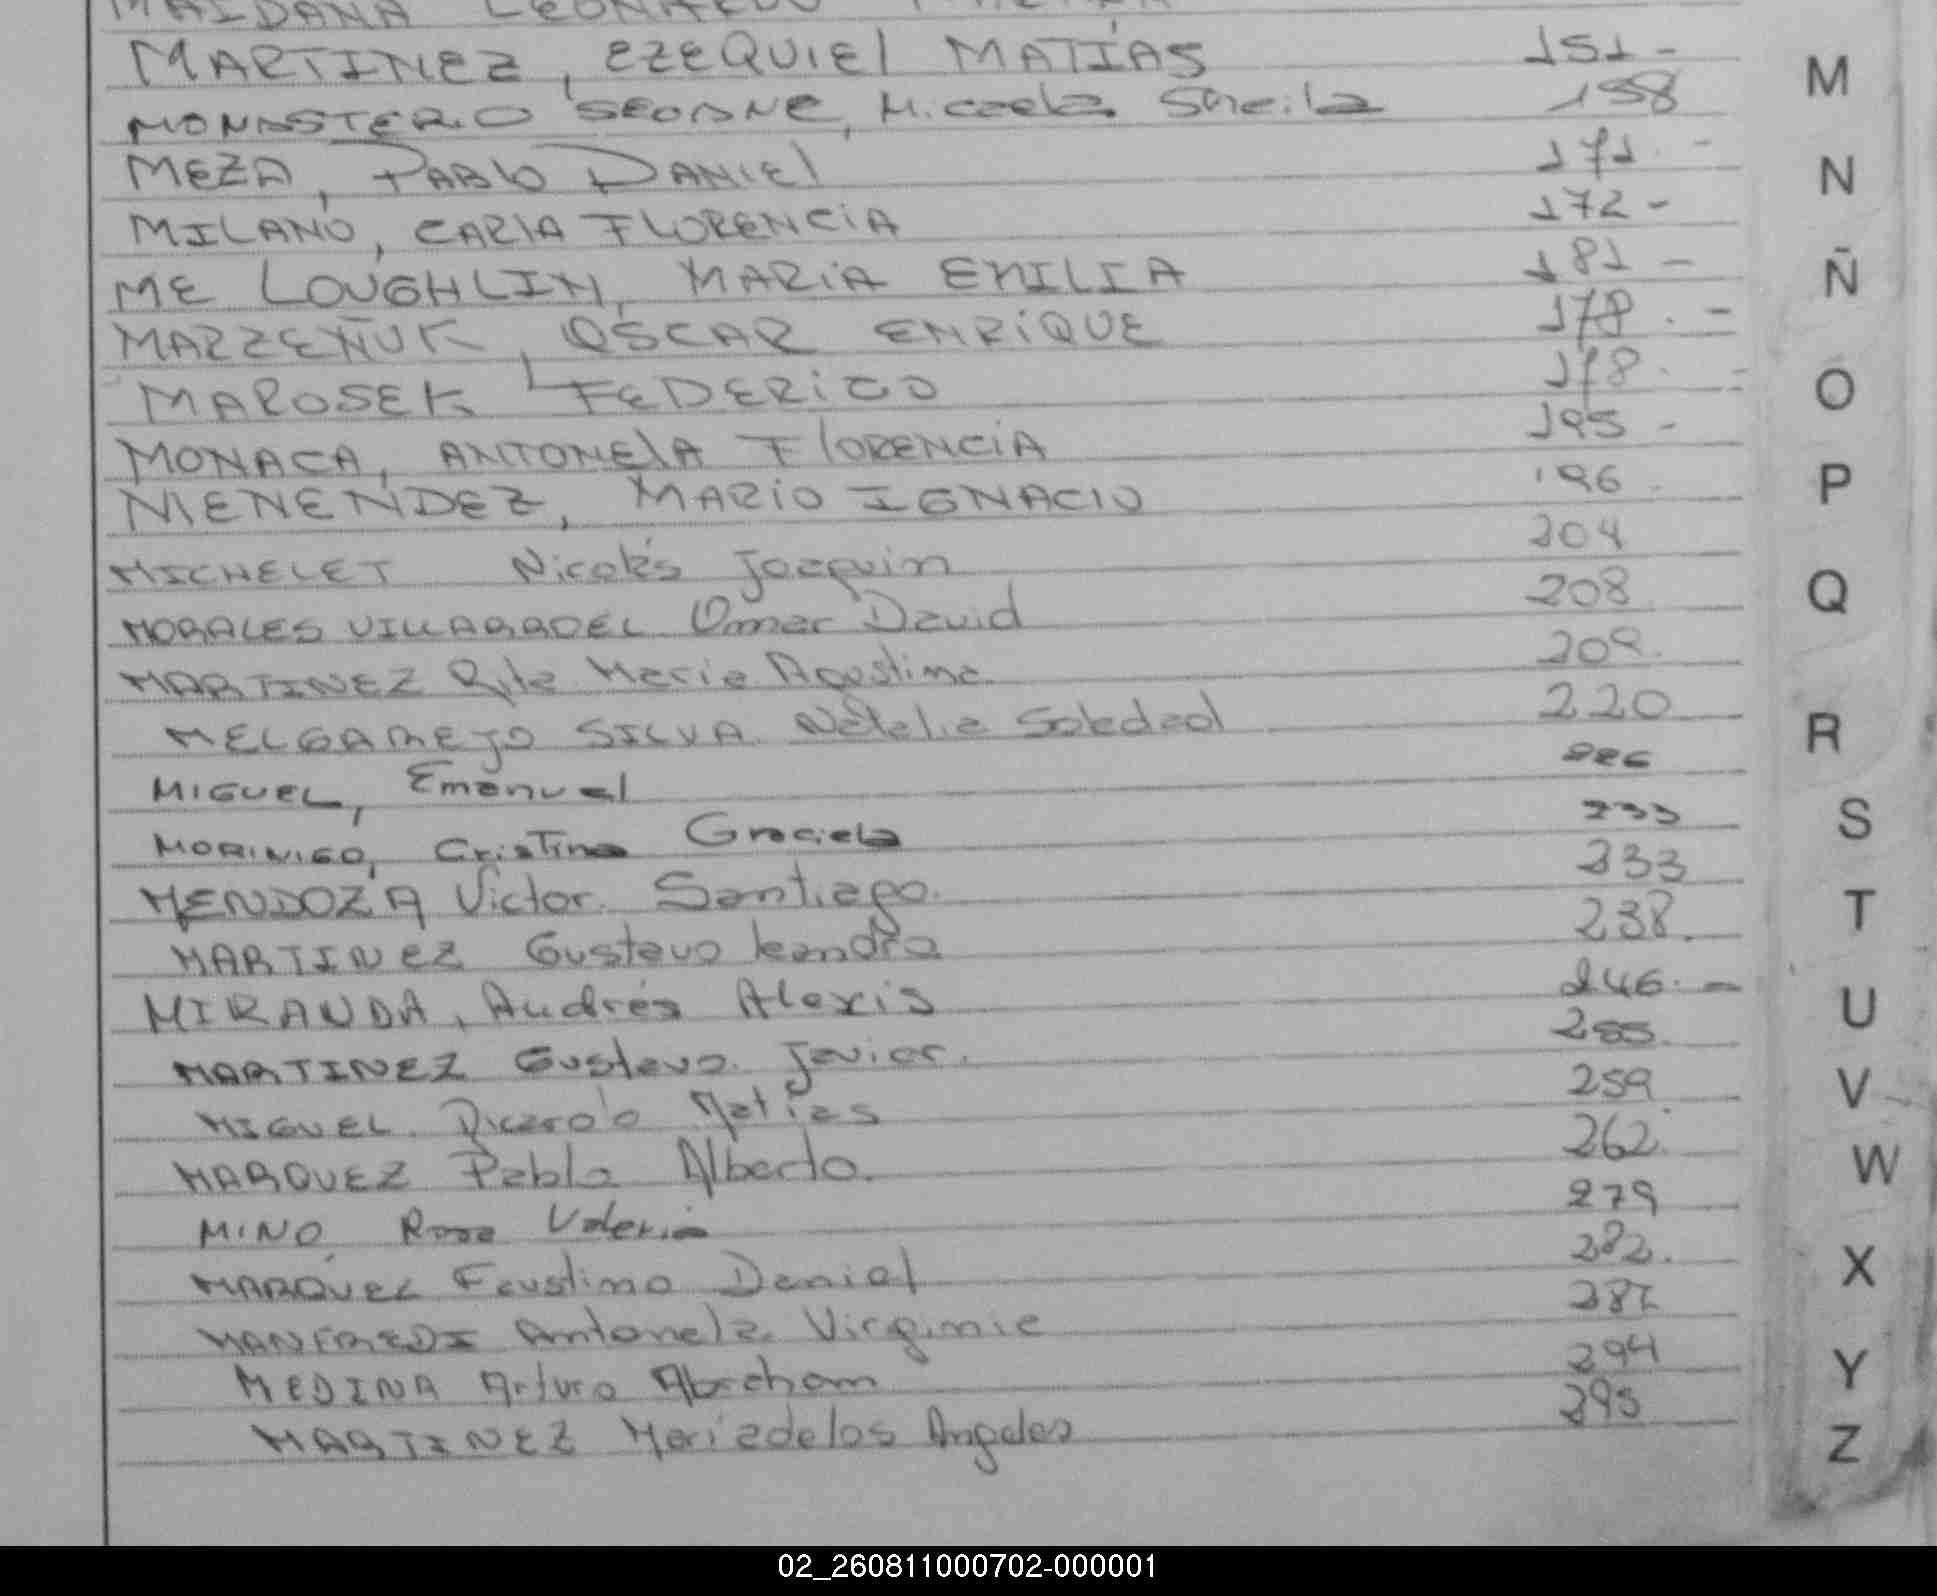 MAIDANA LEONARDO
MARTINEZ, EZEQUIEL MATÍAS 151-
MONASTERIO SEOANE, Micaela Sheila 158
MEZA, PABLO DANIEL 171. -
MILANO, CARLA FLORENCIA 172 -
MC LOUGHLIN, MARIA EMILIA 181 -
MAZZEÑUK, OSCAR ENRIQUE 178. -
MAROSEK FEDERICO 178. -
MONACA, ANTONELA FLORENCIA 195 -
MENENDEZ, MARIO IGNACIO 196
MICHELET Nicolás Joaquin 204
MORALES VILLARROEL Omar David 208
MARTINEZ Rita Maria Agostina 209.
MELGAREJO SILVA Natalia Soledad 220
MIGUEL, Emanuel 226
MORINIGO, Cristina Graciela 233
MENDOZA Victor Santiago. 233
MARTINEZ Gustavo leandro 238.
MIRANDA, Andrés Alexis 246. -
MARTINEZ Gustavo Javier. 255.
MIGUEL Ricardo Matias 259
MARQUEZ Pablo Alberto. 262
MINO, Rosa Valeria 279
MARQUEZ Faustino Daniel 282.
MANFREDI Antonela Virginia 287
MEDINA Arturo Abraham 294
MARTINEZ Maria de los Angeles 295
M
N
Ñ
O
P
Q
R
S
T
U
V
W
X
Y
Z
02_260811000702-000001